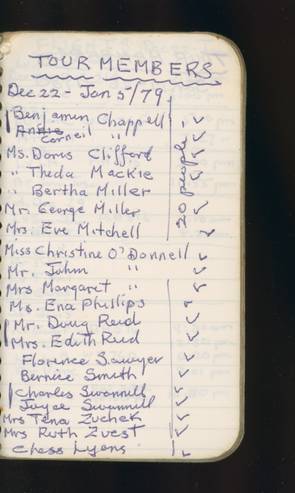 TOUR MEMBERS
Dec 22 - Jan 5/79
Benjamin Chappell
Corneil "
Ms. Doris Clifford
" Theda Mackie
" Bertha Miller
Mr. George Miller
Mrs. Eve Mitchell
20 people
Miss Christine O'Donnell
Mr. John "
Mrs Margaret "
Ms. Ena Phillips
Mr. Doug Reid
Mrs. Edith Reid
Florence Sawyer
Bernice Smith
Charles Swannell
Joyce Swannell
Mrs Tena Zuchek
Mrs Ruth Zvest
Chess Lyons